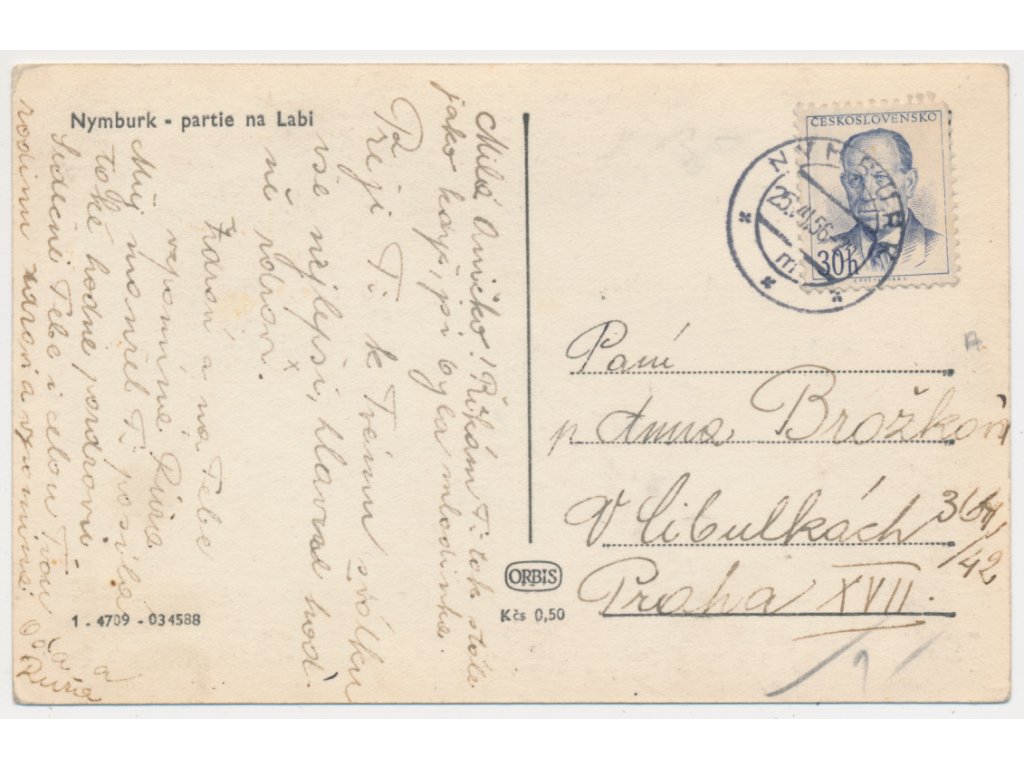 Nymburk - partie na Labi
Milá Aničko! Říkám Ti tak stále
jako když jsi byla mlodinka.
Přeji Ti k Tvému svátku
vše nejlepší, hlavně hod
ně zdraví.
Zdraví a na Tebe
vzpomíná Růža
Můj manžel Ti posílá
také hodně pozdravů
Srdečně Tebe i celou Tvou
rodinu zdraví a vzpomíná
a
Růža
1 - 4709 - 034588
ORBIS
Kčs 0,50
ČESKOSLOVENSKO
30h
NYMBURK
25.VII.56
m
Paní
p. Anna Brožková
V Cibulkách 364
/42
Praha XVII.